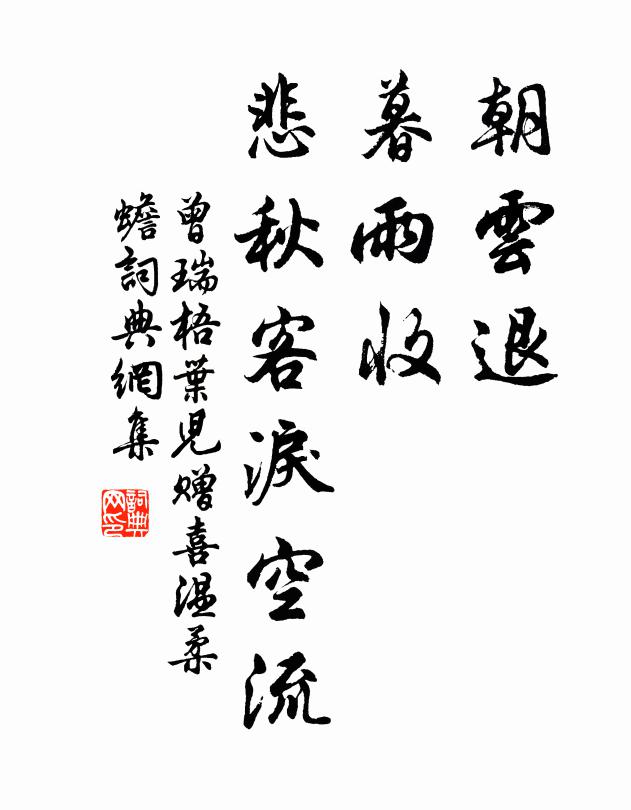 朝雲退
暮雨收
悲秋客淚空流
曾瑞梧葉兒贈喜溫柔
蟾詞典網集
詞典网印